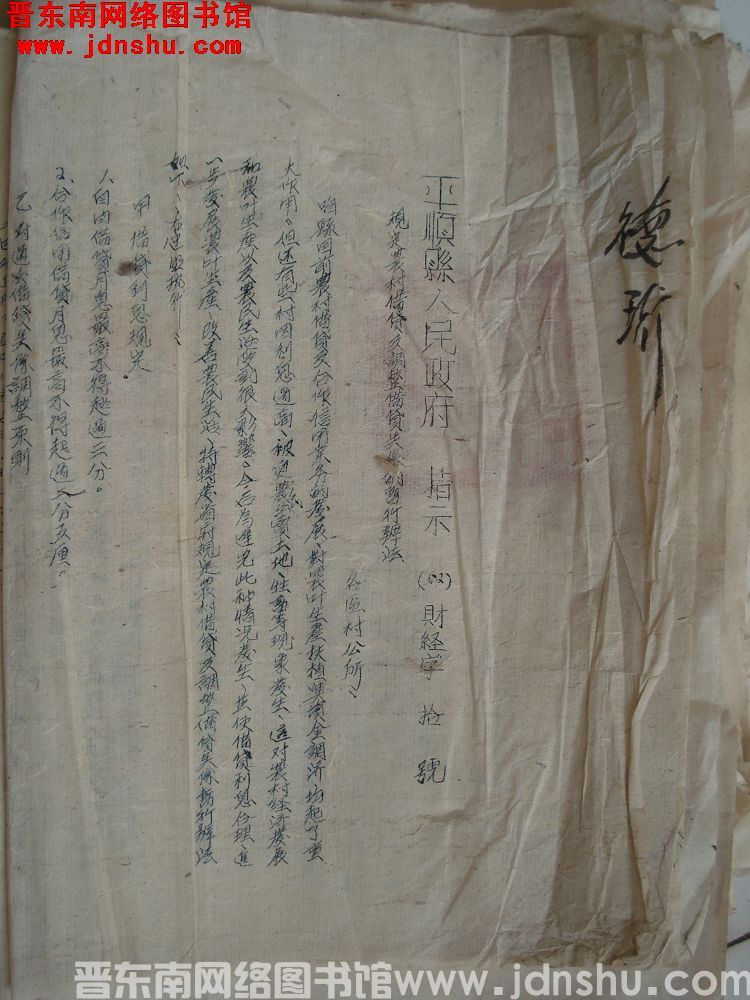 晋东南网络图书馆
www.jdnshu.com
德珩
平順縣人民政府 指示 (52)財经字 拾 號
規定農村借貸及調整借貸关係的暫行辦法
各區村公所、
咱縣目前農村借貸及合作信用業务的發展、對農叶生產扶植與資金調济均起了重
大作用、但还有些村因利息過高、被迫農民賣土地、牲畜等現象發生、這对農村經济發展
和農叶生產以及農民生活受到很大影響、今后為避免此种情况發生、並使借貸利息合理、進
一步發展農叶生產、改善農民生活、特轉發省府規定農村借貸及調整借貸关係暫行辦法
如下、希遵照执行、
甲 借貸利息規定
1、自由借貸月息最高不得超過三分。
2、合作信用借貸月息最高不得超過二分五厘。
乙 对過去借貸关係調整原則
晋东南网络图书馆www.jdnshu.com